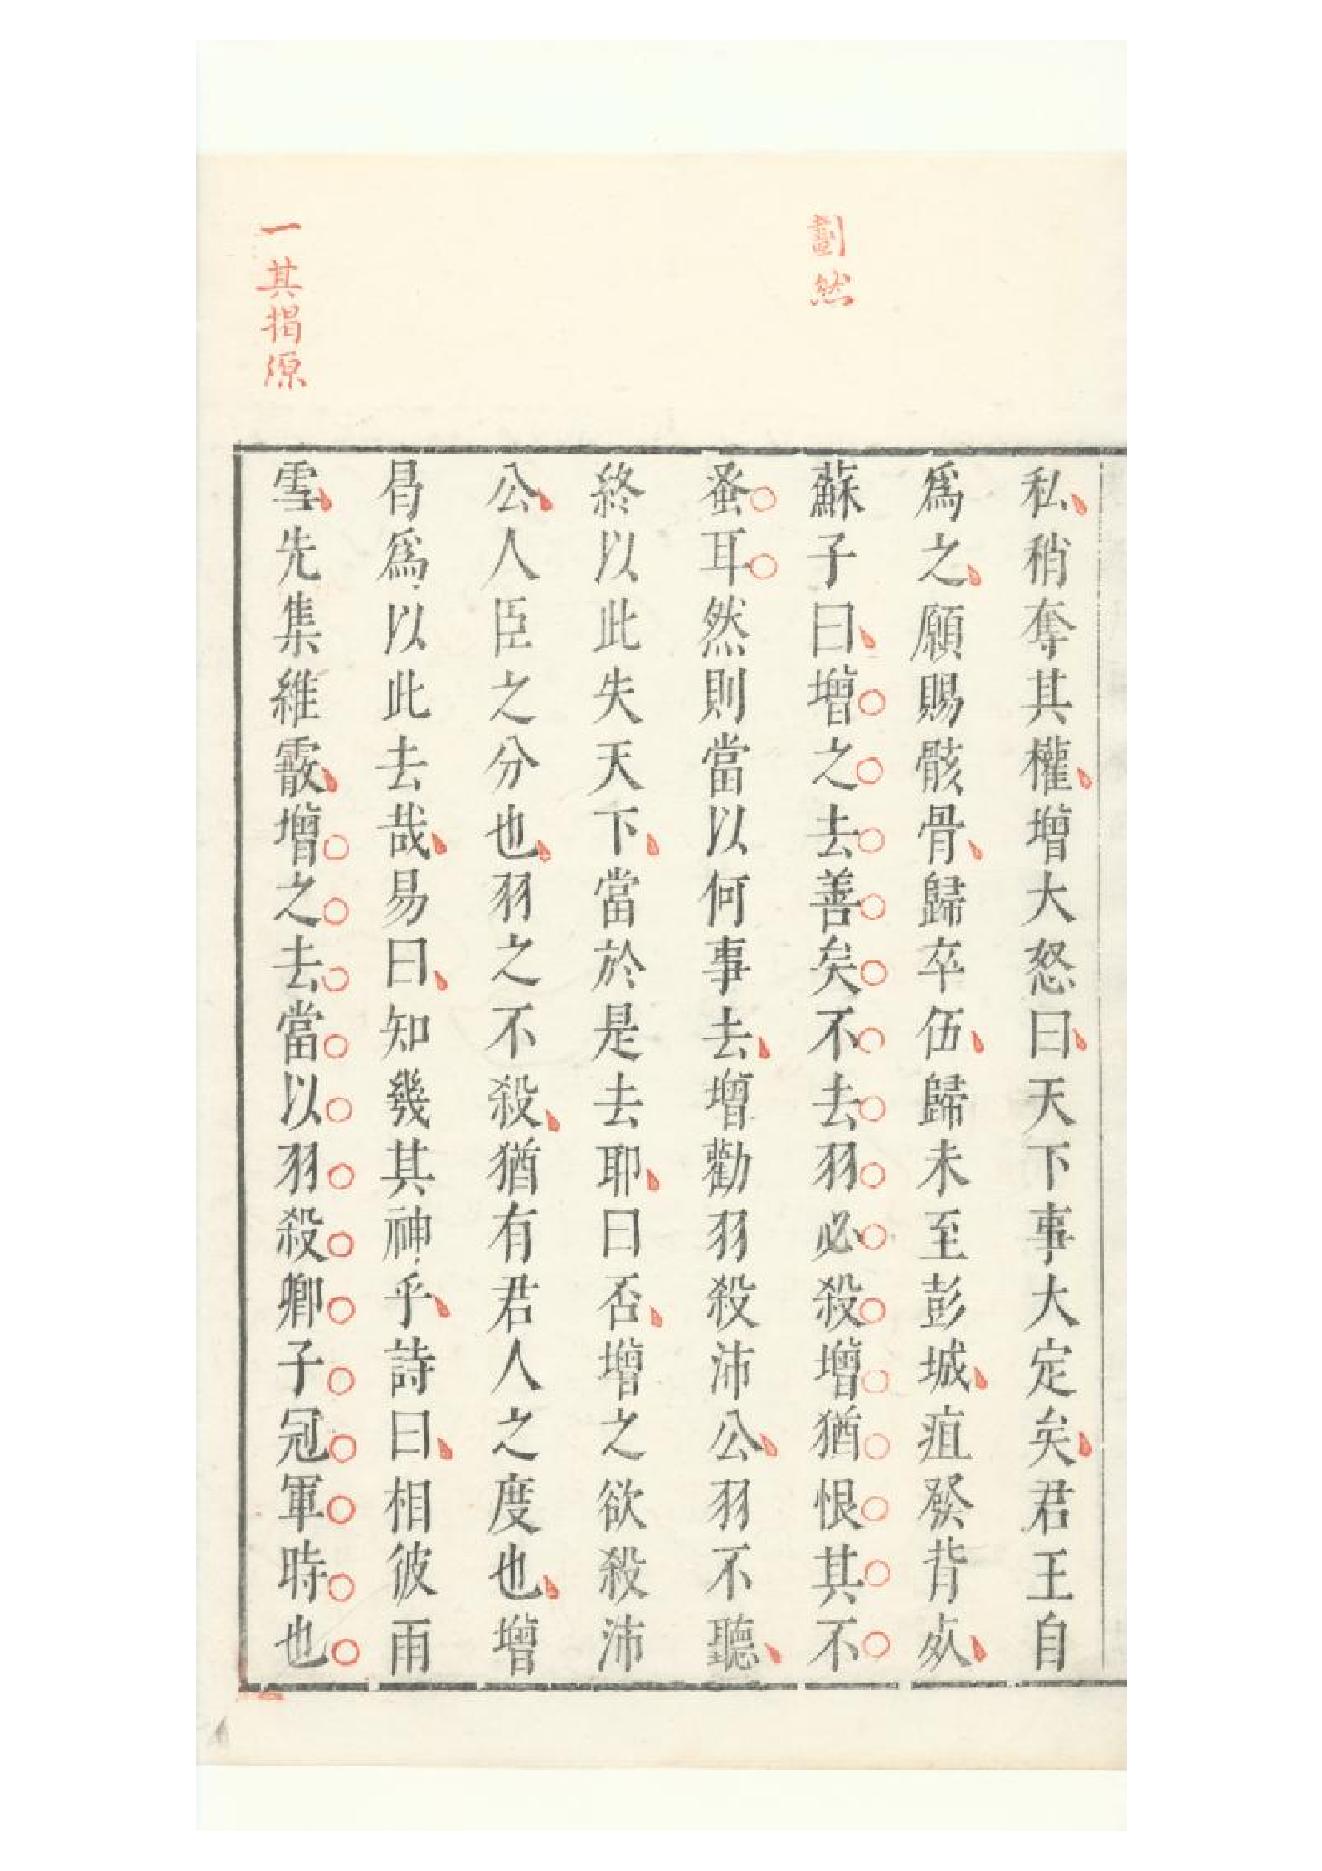 劃然
一其揭源
私稍奪其權增大怒曰天下事大定矣君王自
爲之願賜骸骨歸卒伍歸未至彭城疽發背死
蘇子曰增之去善矣不去羽必殺增猶恨其不
蚤耳然則當以何事去增勸羽殺沛公羽不聽
終以此失天下當於是去耶曰否增之欲殺沛
公人臣之分也羽之不殺猶有君人之度也增
曷爲以此去哉易曰知幾其神乎詩曰相彼雨
雪先集維霰增之去當以羽殺卿子冠軍時也